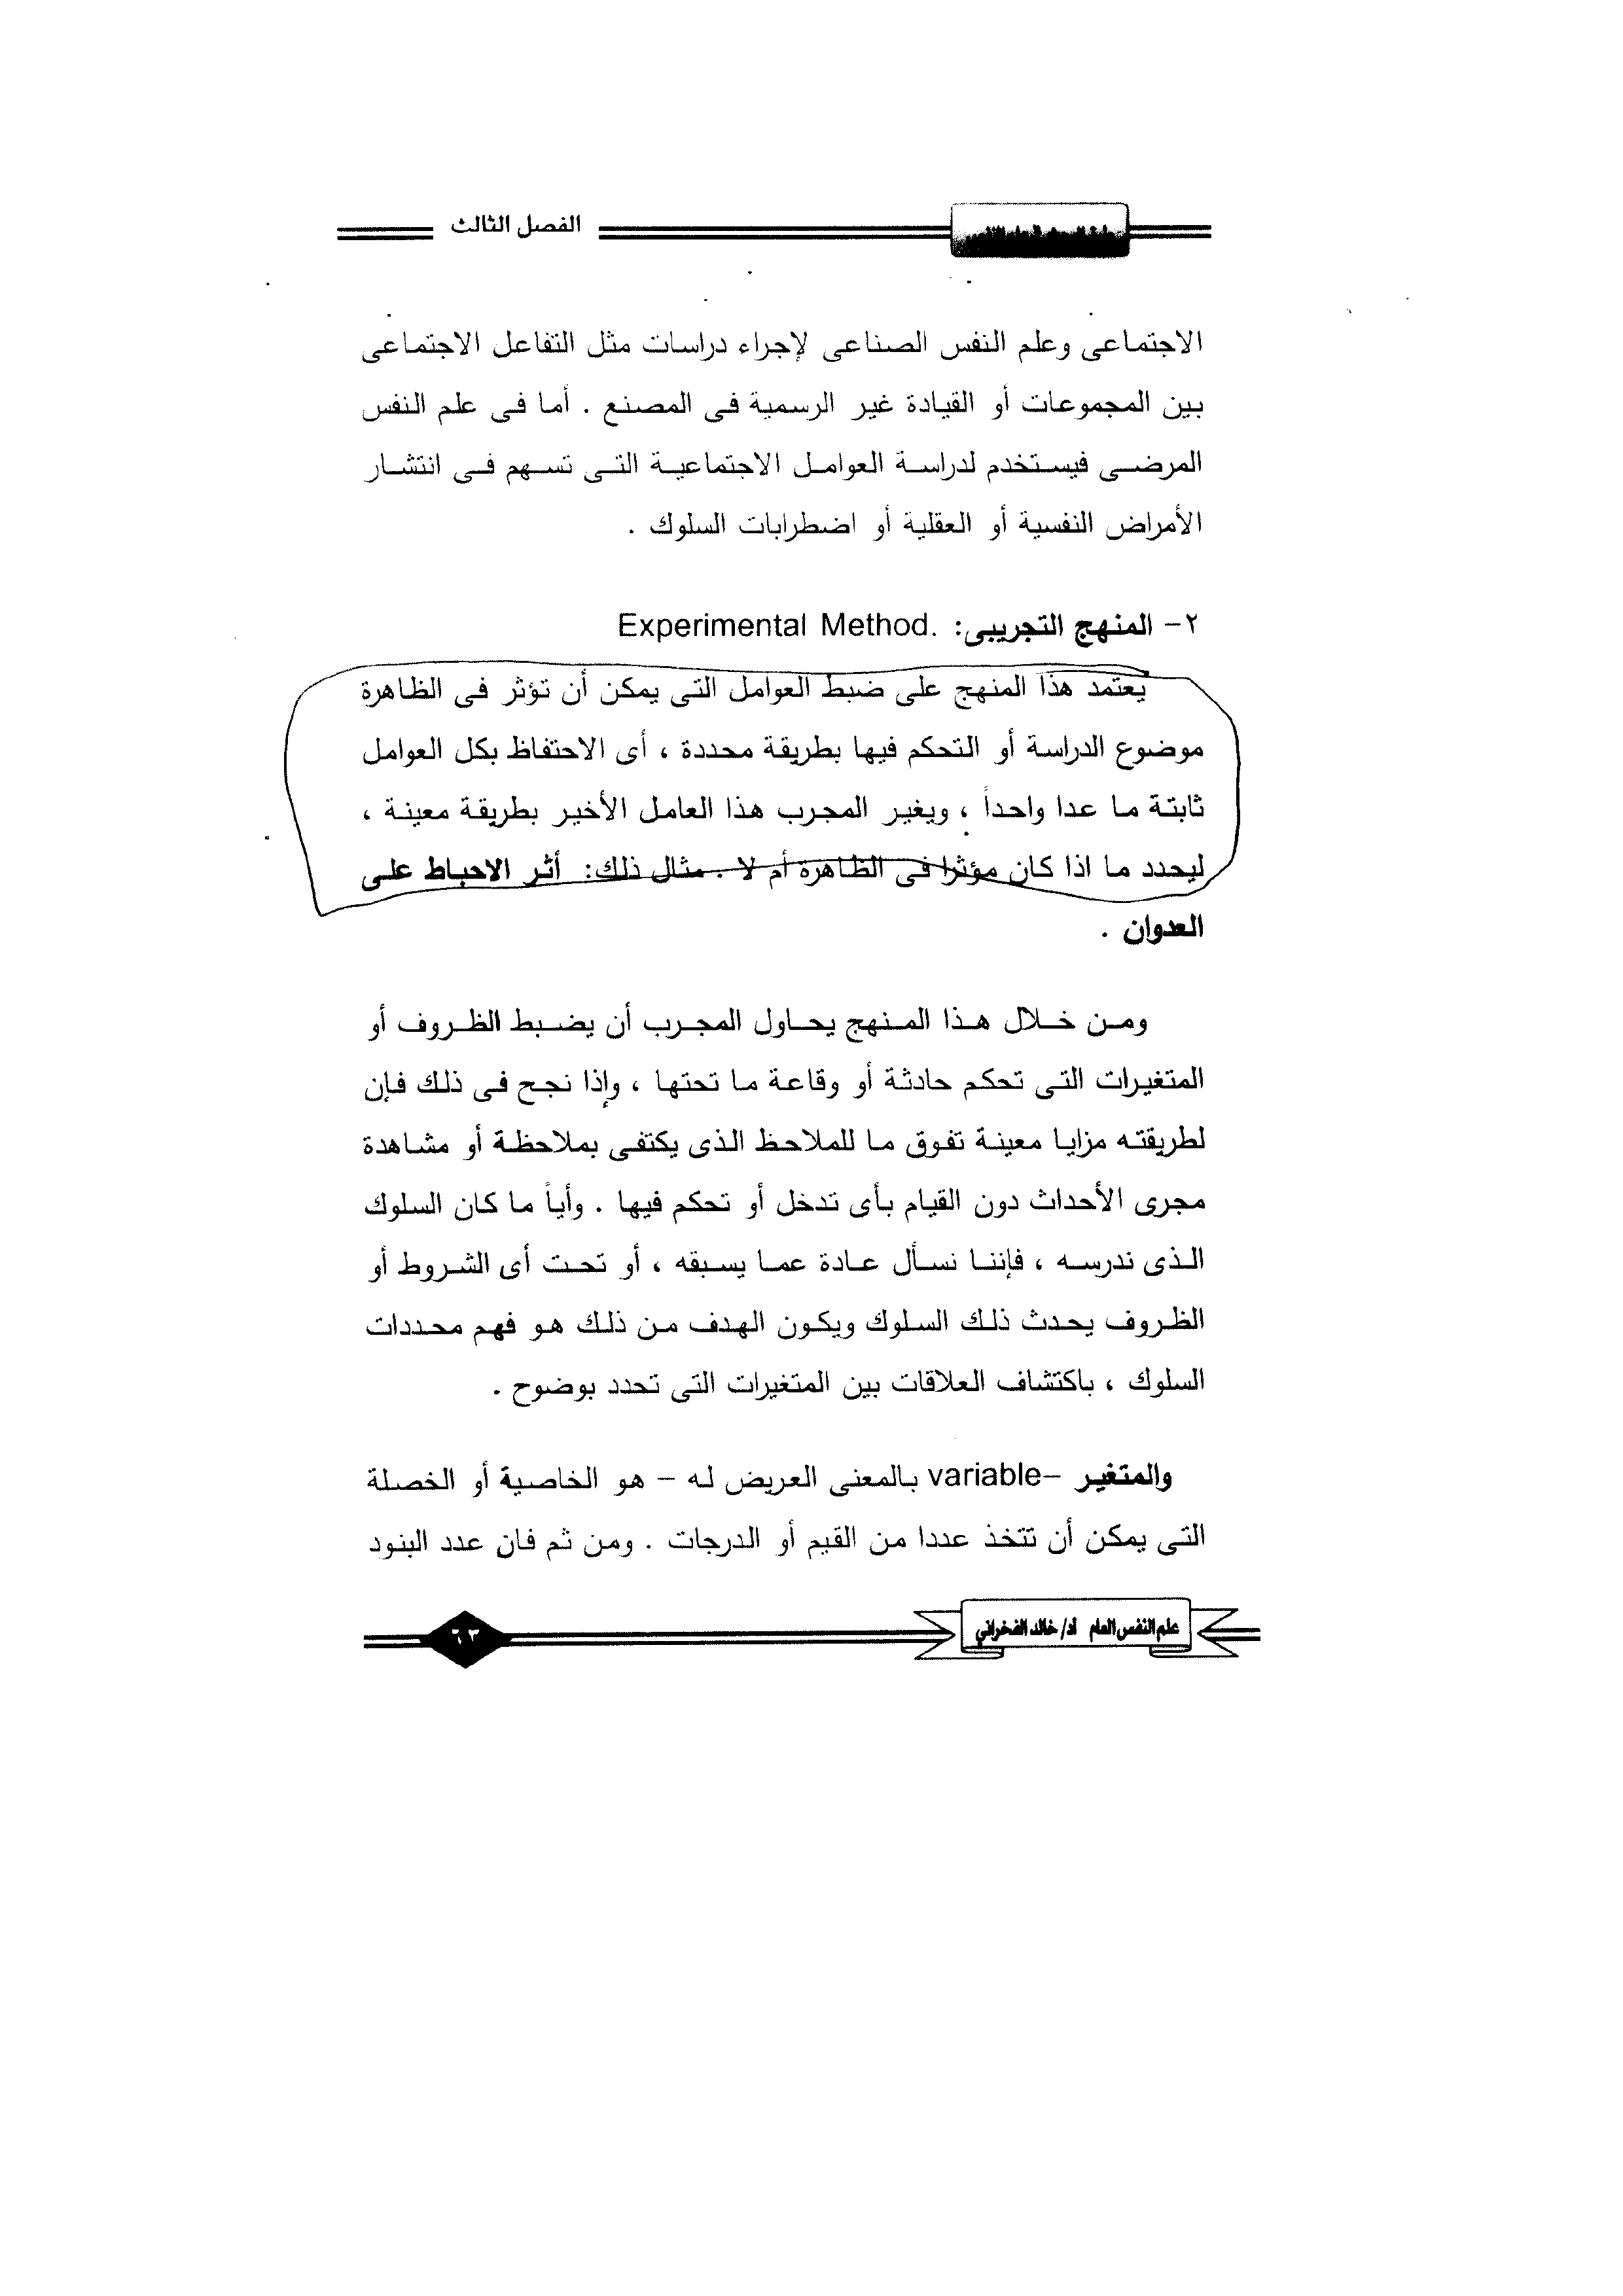 الفصل الثالث
الاجتماعى وعلم النفس الصناعى لإجراء دراسات مثل التفاعل الاجتماعى
بين المجموعات أو القيادة غير الرسمية فى المصنع . أما فى علم النفس
المرضى فيستخدم لدراسة العوامل الاجتماعية التى تسهم فى انتشار
الأمراض النفسية أو العقلية أو اضطرابات السلوك .
٢- المنهج التجريبى: Experimental Method.
يعتمد هذا المنهج على ضبط العوامل التى يمكن أن تؤثر فى الظاهرة
موضوع الدراسة أو التحكم فيها بطريقة محددة ، أى الاحتفاظ بكل العوامل
ثابتة ما عدا واحداً ، ويغير المجرب هذا العامل الأخير بطريقة معينة ،
ليحدد ما اذا كان مؤثرا فى الظاهرة أم لا . مثال ذلك: أثر الاحباط على
العدوان .
ومن خلال هذا المنهج يحاول المجرب أن يضبط الظروف أو
المتغيرات التى تحكم حادثة أو وقاعة ما تحتها ، وإذا نجح فى ذلك فإن
لطريقته مزايا معينة تفوق ما للملاحظ الذى يكتفى بملاحظة أو مشاهدة
مجرى الأحداث دون القيام بأى تدخل أو تحكم فيها . وأياً ما كان السلوك
الذى ندرسه ، فإننا نسأل عادة عما يسبقه ، أو تحت أى الشروط أو
الظروف يحدث ذلك السلوك ويكون الهدف من ذلك هو فهم محددات
السلوك ، باكتشاف العلاقات بين المتغيرات التى تحدد بوضوح .
والمتغير –variable بالمعنى العريض له – هو الخاصية أو الخصلة
التى يمكن أن تتخذ عددا من القيم أو الدرجات . ومن ثم فان عدد البنود
علم النفس العام أد/ خالد الفخراني
٦٣